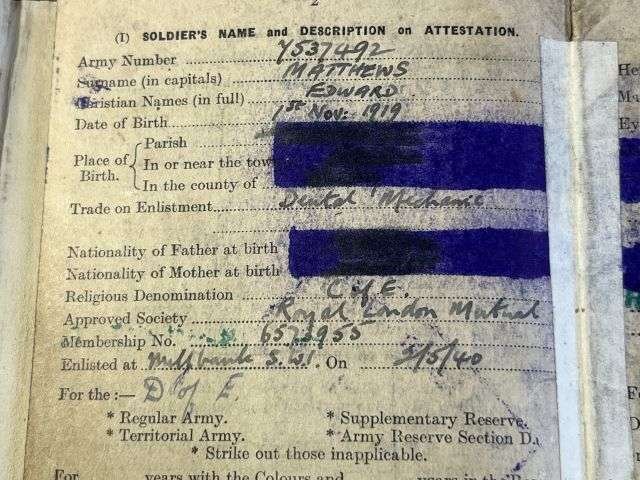 2
(I) SOLDIER'S NAME and DESCRIPTION on ATTESTATION.
Army Number 7537492
Surname (in capitals) MATTHEWS
Christian Names (in full) EDWARD
Date of Birth 1st Nov: 1919
Place of Birth.
Parish
In or near the town
In the county of
Trade on Enlistment Dental Mechanic
Nationality of Father at birth
Nationality of Mother at birth
Religious Denomination C of E.
Approved Society Royal London Mutual
Membership No. 6573955
Enlisted at Millbank S.W.1. On 3/5/40
For the :— D of E.
* Regular Army. * Supplementary Reserve.
* Territorial Army. * Army Reserve Section D.
* Strike out those inapplicable.
For years with the Colours and years in the